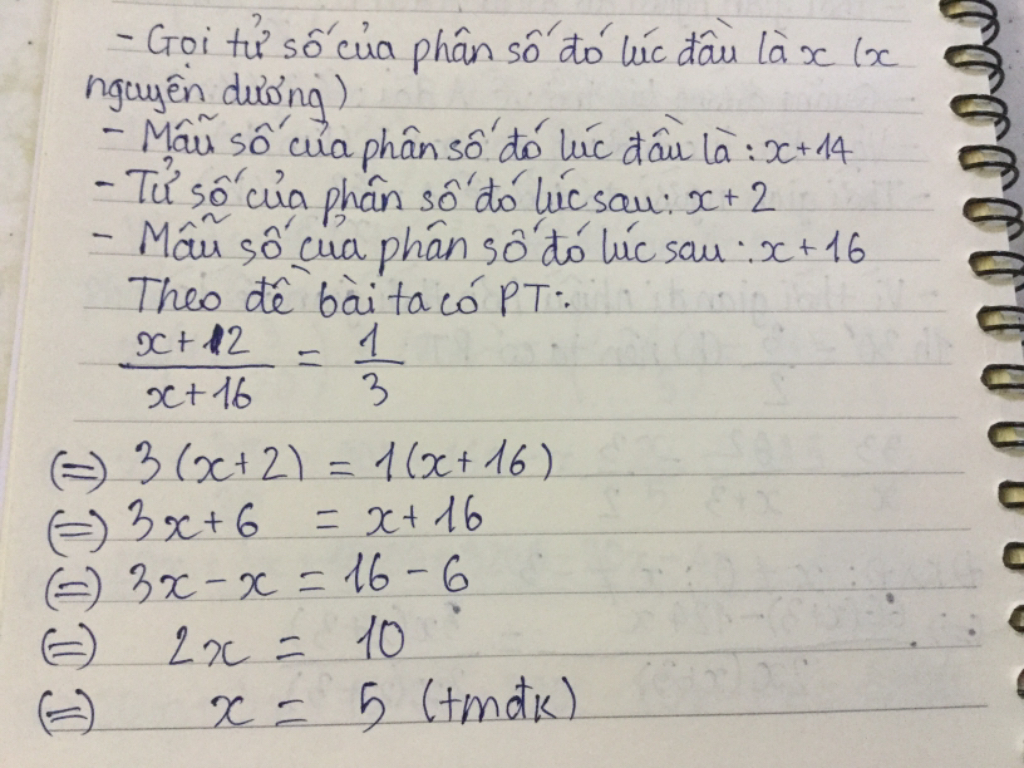 - Gọi tử số của phân số đó lúc đầu là x (x
nguyên dương)
- Mẫu số của phân số đó lúc đầu là: x+14
- Tử số của phân số đó lúc sau: x+2
- Mẫu số của phân số đó lúc sau: x+16
Theo đề bài ta có PT:
x+2 / x+16 = 1 / 3
(=) 3(x+2) = 1(x+16)
(=) 3x+6 = x+16
(=) 3x-x = 16-6
(=) 2x = 10
(=) x = 5 (tmđk)